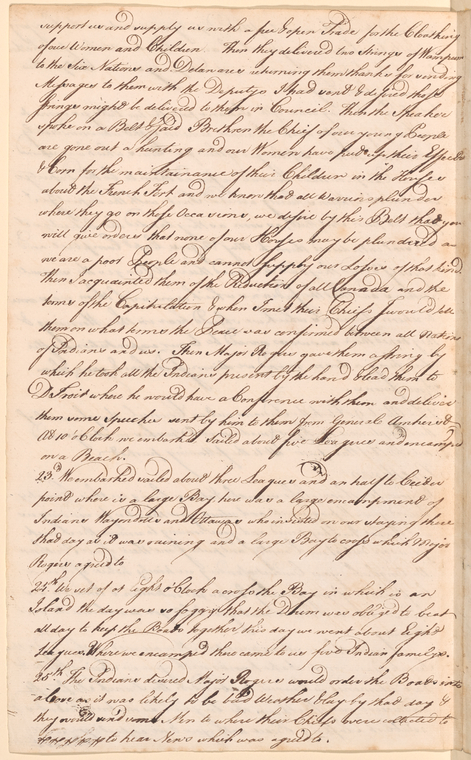 support us and supply us with a free & open Trade for the Cloathing
of our Women and Children Then they delivered two Strings of Wampum
to the Six Nations and Delawares returning them thanks for sending
Messages to them with the Deputys I had sent & desired those
Strings might be delivered to them in Council. Then the Speaker
spoke on a Belt & said Brethren the Chief of our young People
are gone out a hunting and our Women have put up their Effects
& Corn for the maintainance of their Children in the Houses
about the French Fort and we know that all Warriors plunder
where they go on those Occasions, we desire by this Belt that you
will give orders that none of our Houses may be plundered as
we are a poor People and cannot supply our Losses of that kind.
Then I acquainted them of the Reduction of all Canada and the
terms of the Capitulation & when I met their Chiefs I would tell
them on what terms the Peace was confirmed between all Nations
of Indians and us. Then Major Rogers gave them a string by
which he took all the Indians present by the hand & lead them to
D'Troit where he would have a Conference with them and deliver
them some speeches sent by him to them from General Amherst
At 10 o'Clock we embarked Sailed about five Leagues and encamped
on a Beach.
23.d We embarked sailed about three Leagues and an half to Ceeder
point where is a large Bay here was a large encampment of
Indians Wayondotts and Ottawas who insisted on our staying there
that day as it was raining and a large Bay to cross which Major
Rogers agreed to
24.th We set of at Eight o'Clock across the Bay in which is an
Island the day was so foggy that the Drum was obliged to beat
all day to keep the Boats together this day we went about Eight
Leagues. Where we encamped there came to us five Indian Familys.
25.th The Indians desired Major Rogers would order the Boats into
a Cove as it was likely to be bad Weather & lay by that day &
they would send some Men to where their Chiefs were collected to
to hear News which was agreed to.